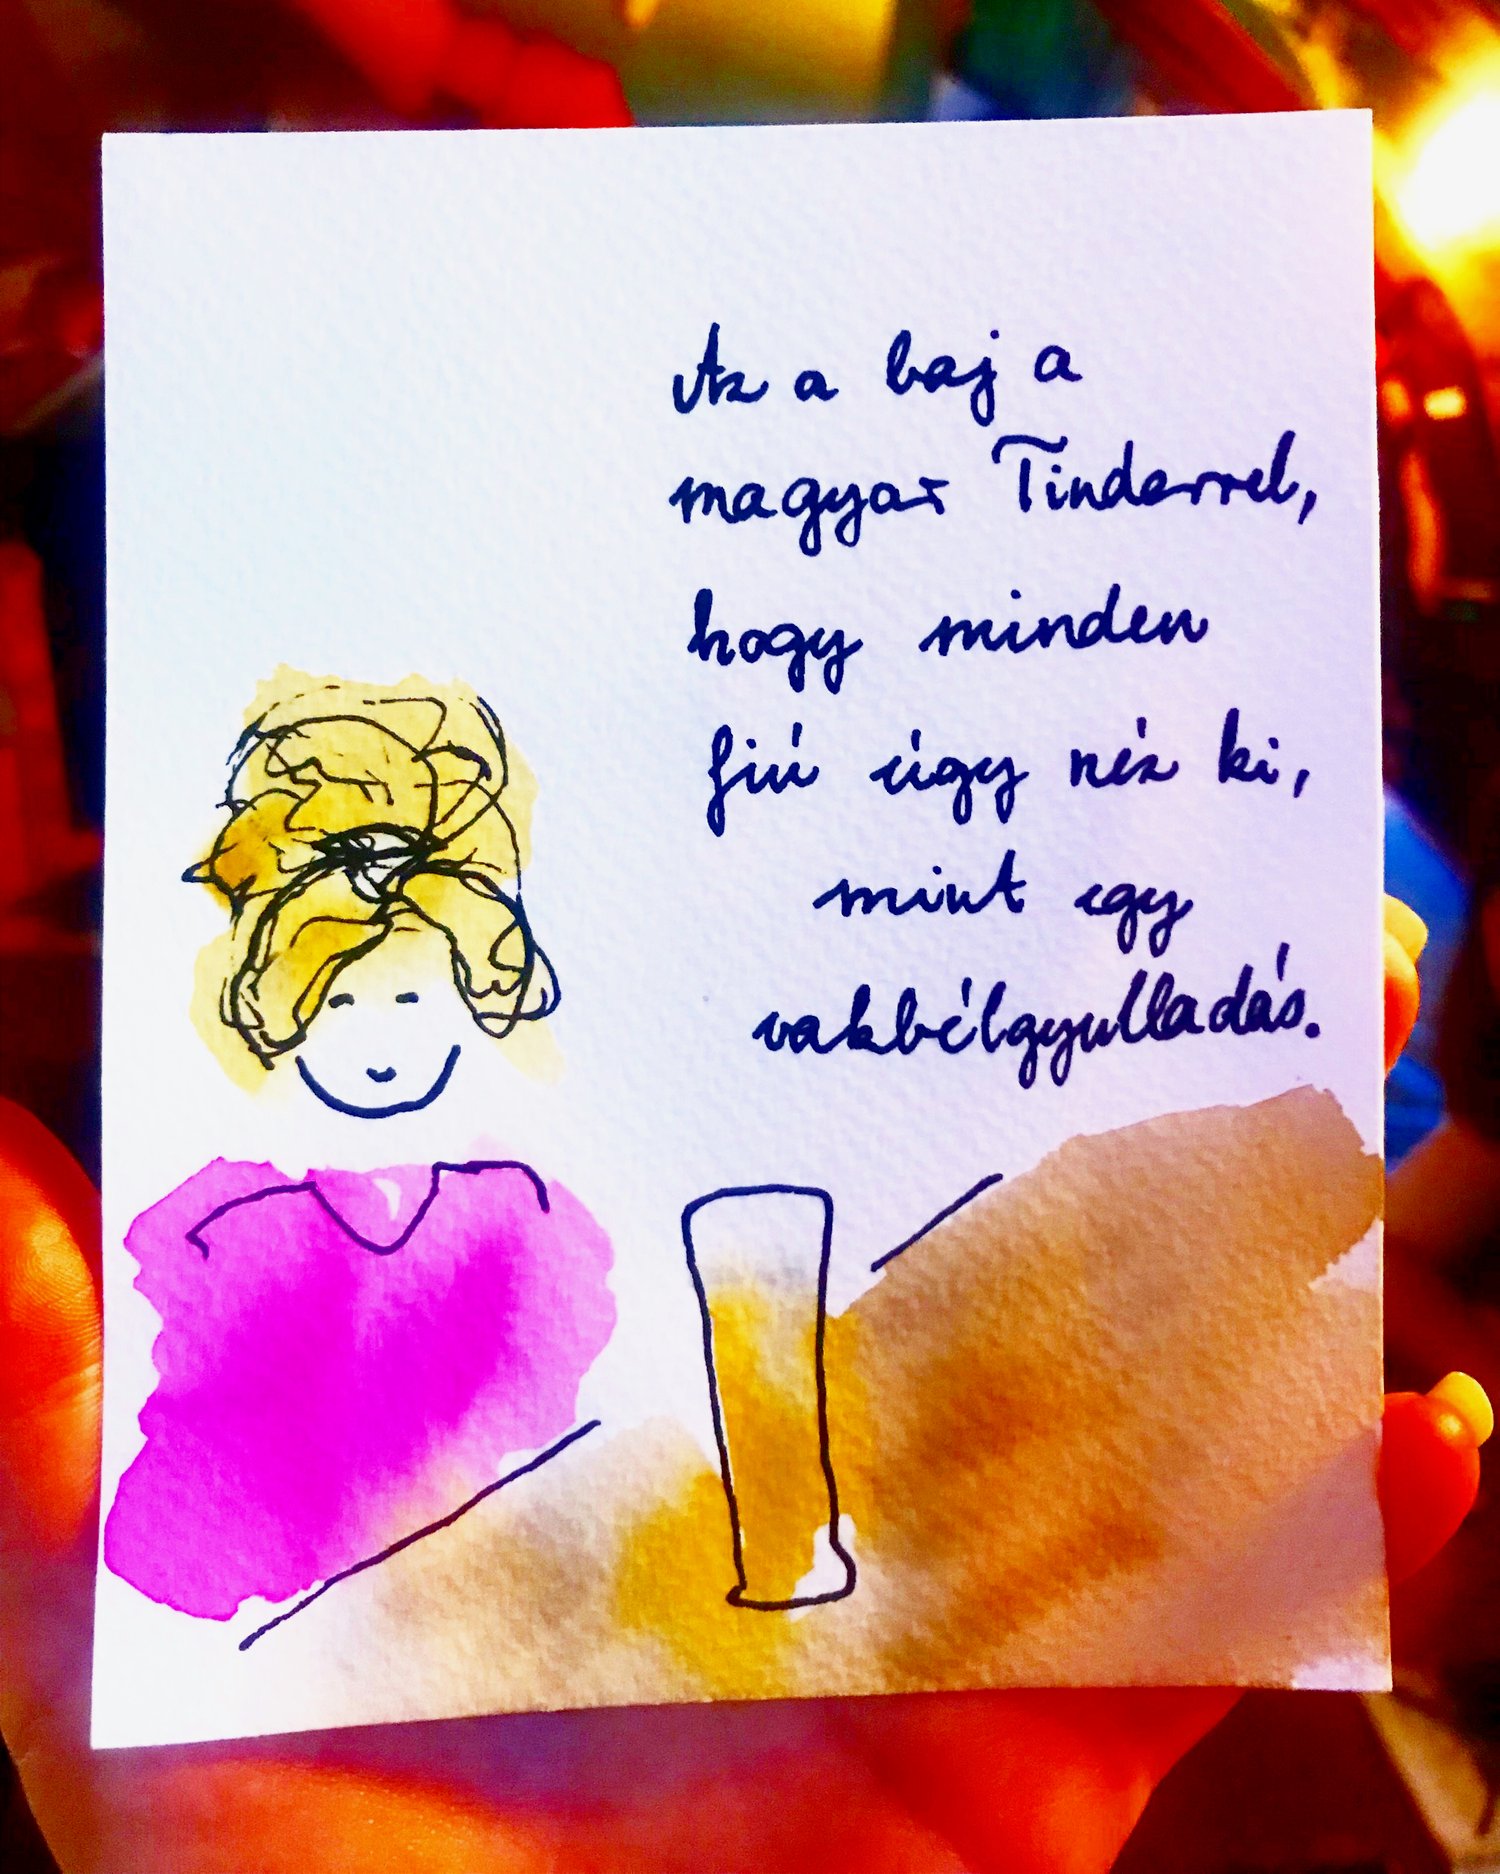 Az a baj a
magyar Tinderrel,
hogy minden
fiú úgy néz ki,
mint egy
vakbélgyulladás.